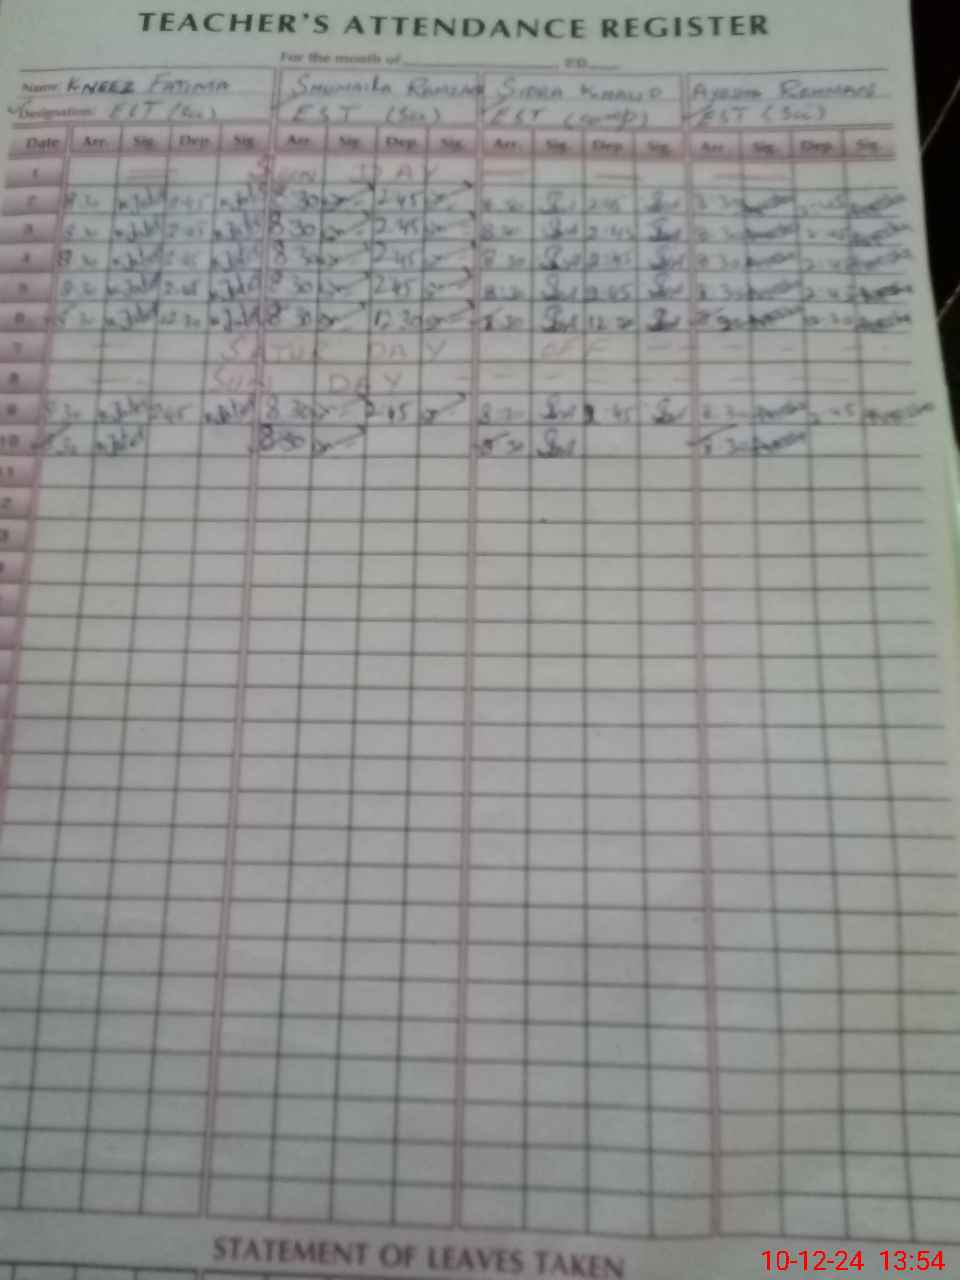 TEACHER'S ATTENDANCE REGISTER
For the month of
Name: KNEEZ FATIMA SHUMAILA RAMZAN SIDRA KHALID AYESHA REHMAN
Designation: EST (Sci) EST (Sci) EST (comp) EST (Sci)
Date Arr. Sig. Dep. Sig. Arr. Sig. Dep. Sig. Arr. Sig. Dep. Sig. Arr. Sig. Dep. Sig.
1 SUN DAY
2 8 30 2 45 8 30 2 45 8 30 2 45 8 30 2 45
3 8 30 2 45 8 30 2 45 8 30 2 45 8 30 2 45
4 8 30 2 45 8 30 2 45 8 30 2 45 8 30 2 45
5 8 30 2 45 8 30 2 45 8 30 2 45 8 30 2 45
6 8 30 12 30 8 30 12 30 8 30 12 30 8 30 12 30
7 SATUR DAY OFF
8 SUN DAY
9 8 30 2 45 8 30 2 45 8 30 2 45 8 30 2 45
10 8 30 8 30 8 30 8 30
11
2
3
STATEMENT OF LEAVES TAKEN
10-12-24 13:54